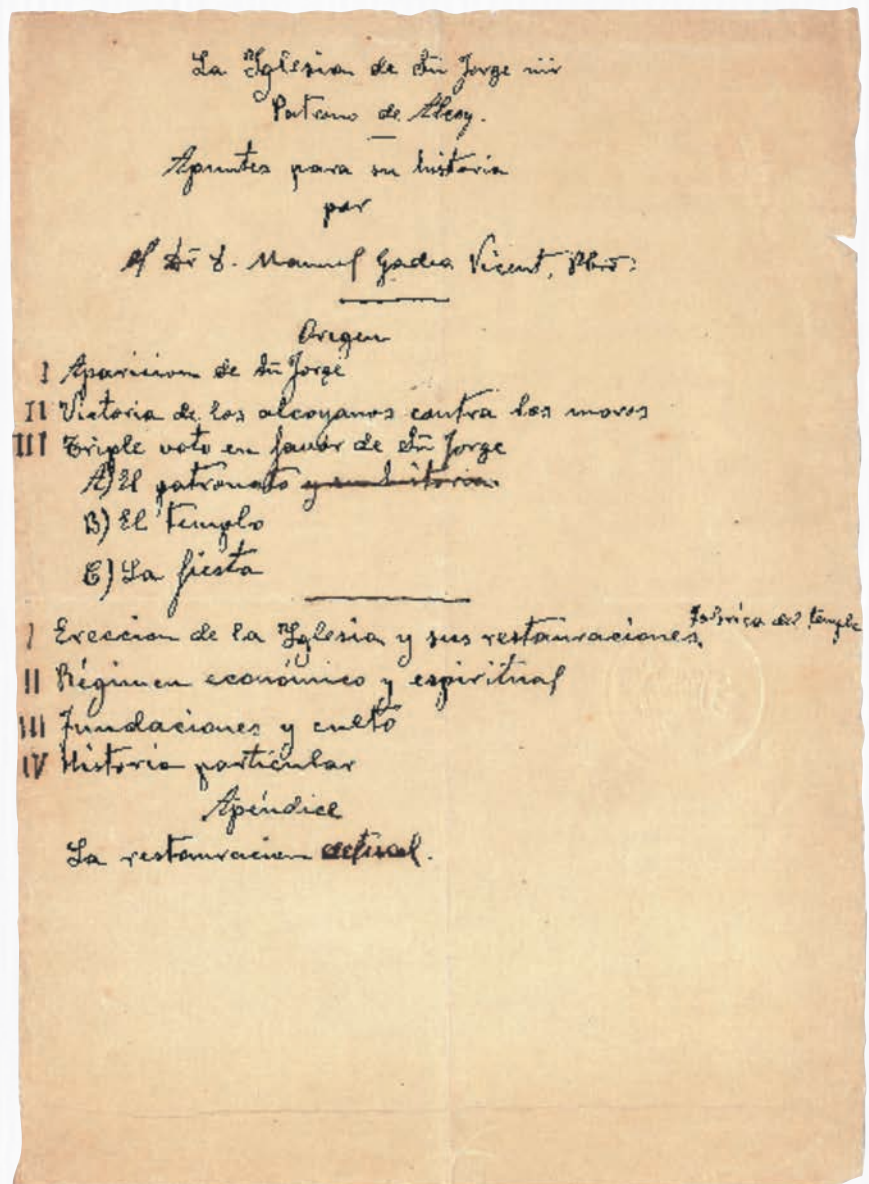 La Iglesia de Sn Jorge mr
Patrono de Alcoy.
Apuntes para su historia
por
el Dr D. Manuel Gadea Vicent, Pbro:
Origen
I Aparicion de Sn Jorge
II Victoria de los alcoyanos contra los moros
III Triple voto en favor de Sn Jorge
A) El patronato y su historia.
B) El templo
C) La fiesta
I Ereccion de la Iglesia y sus restauraciones. Fabrica del temple
II Régimen económico y espiritual
III Fundaciones y culto
IV Historia particular
Apéndice
La restauracion actual.